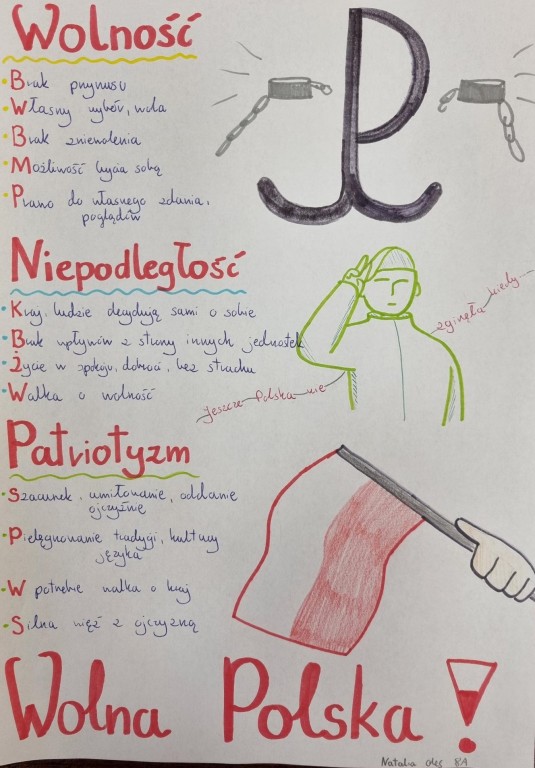 Wolność
Brak przymusu
Własny wybór, wola
Brak zniewolenia
Możliwość bycia sobą
Prawo do własnego zdania,
poglądów
Niepodległość
Kraj, ludzie decydują sami o sobie
Brak wpływów z strony innych jednostek
Życie w spokoju, dobroci, bez strachu
Walka o wolność
Jeszcze Polska nie
zginęła kiedy...
Patriotyzm
Szacunek, umiłowanie, oddanie
ojczyźnie
Pielęgnowanie tradycji, kultury
języka
W potrzebie walka o kraj
Silna więź z ojczyzną
Wolna Polska!
Natalia 8A